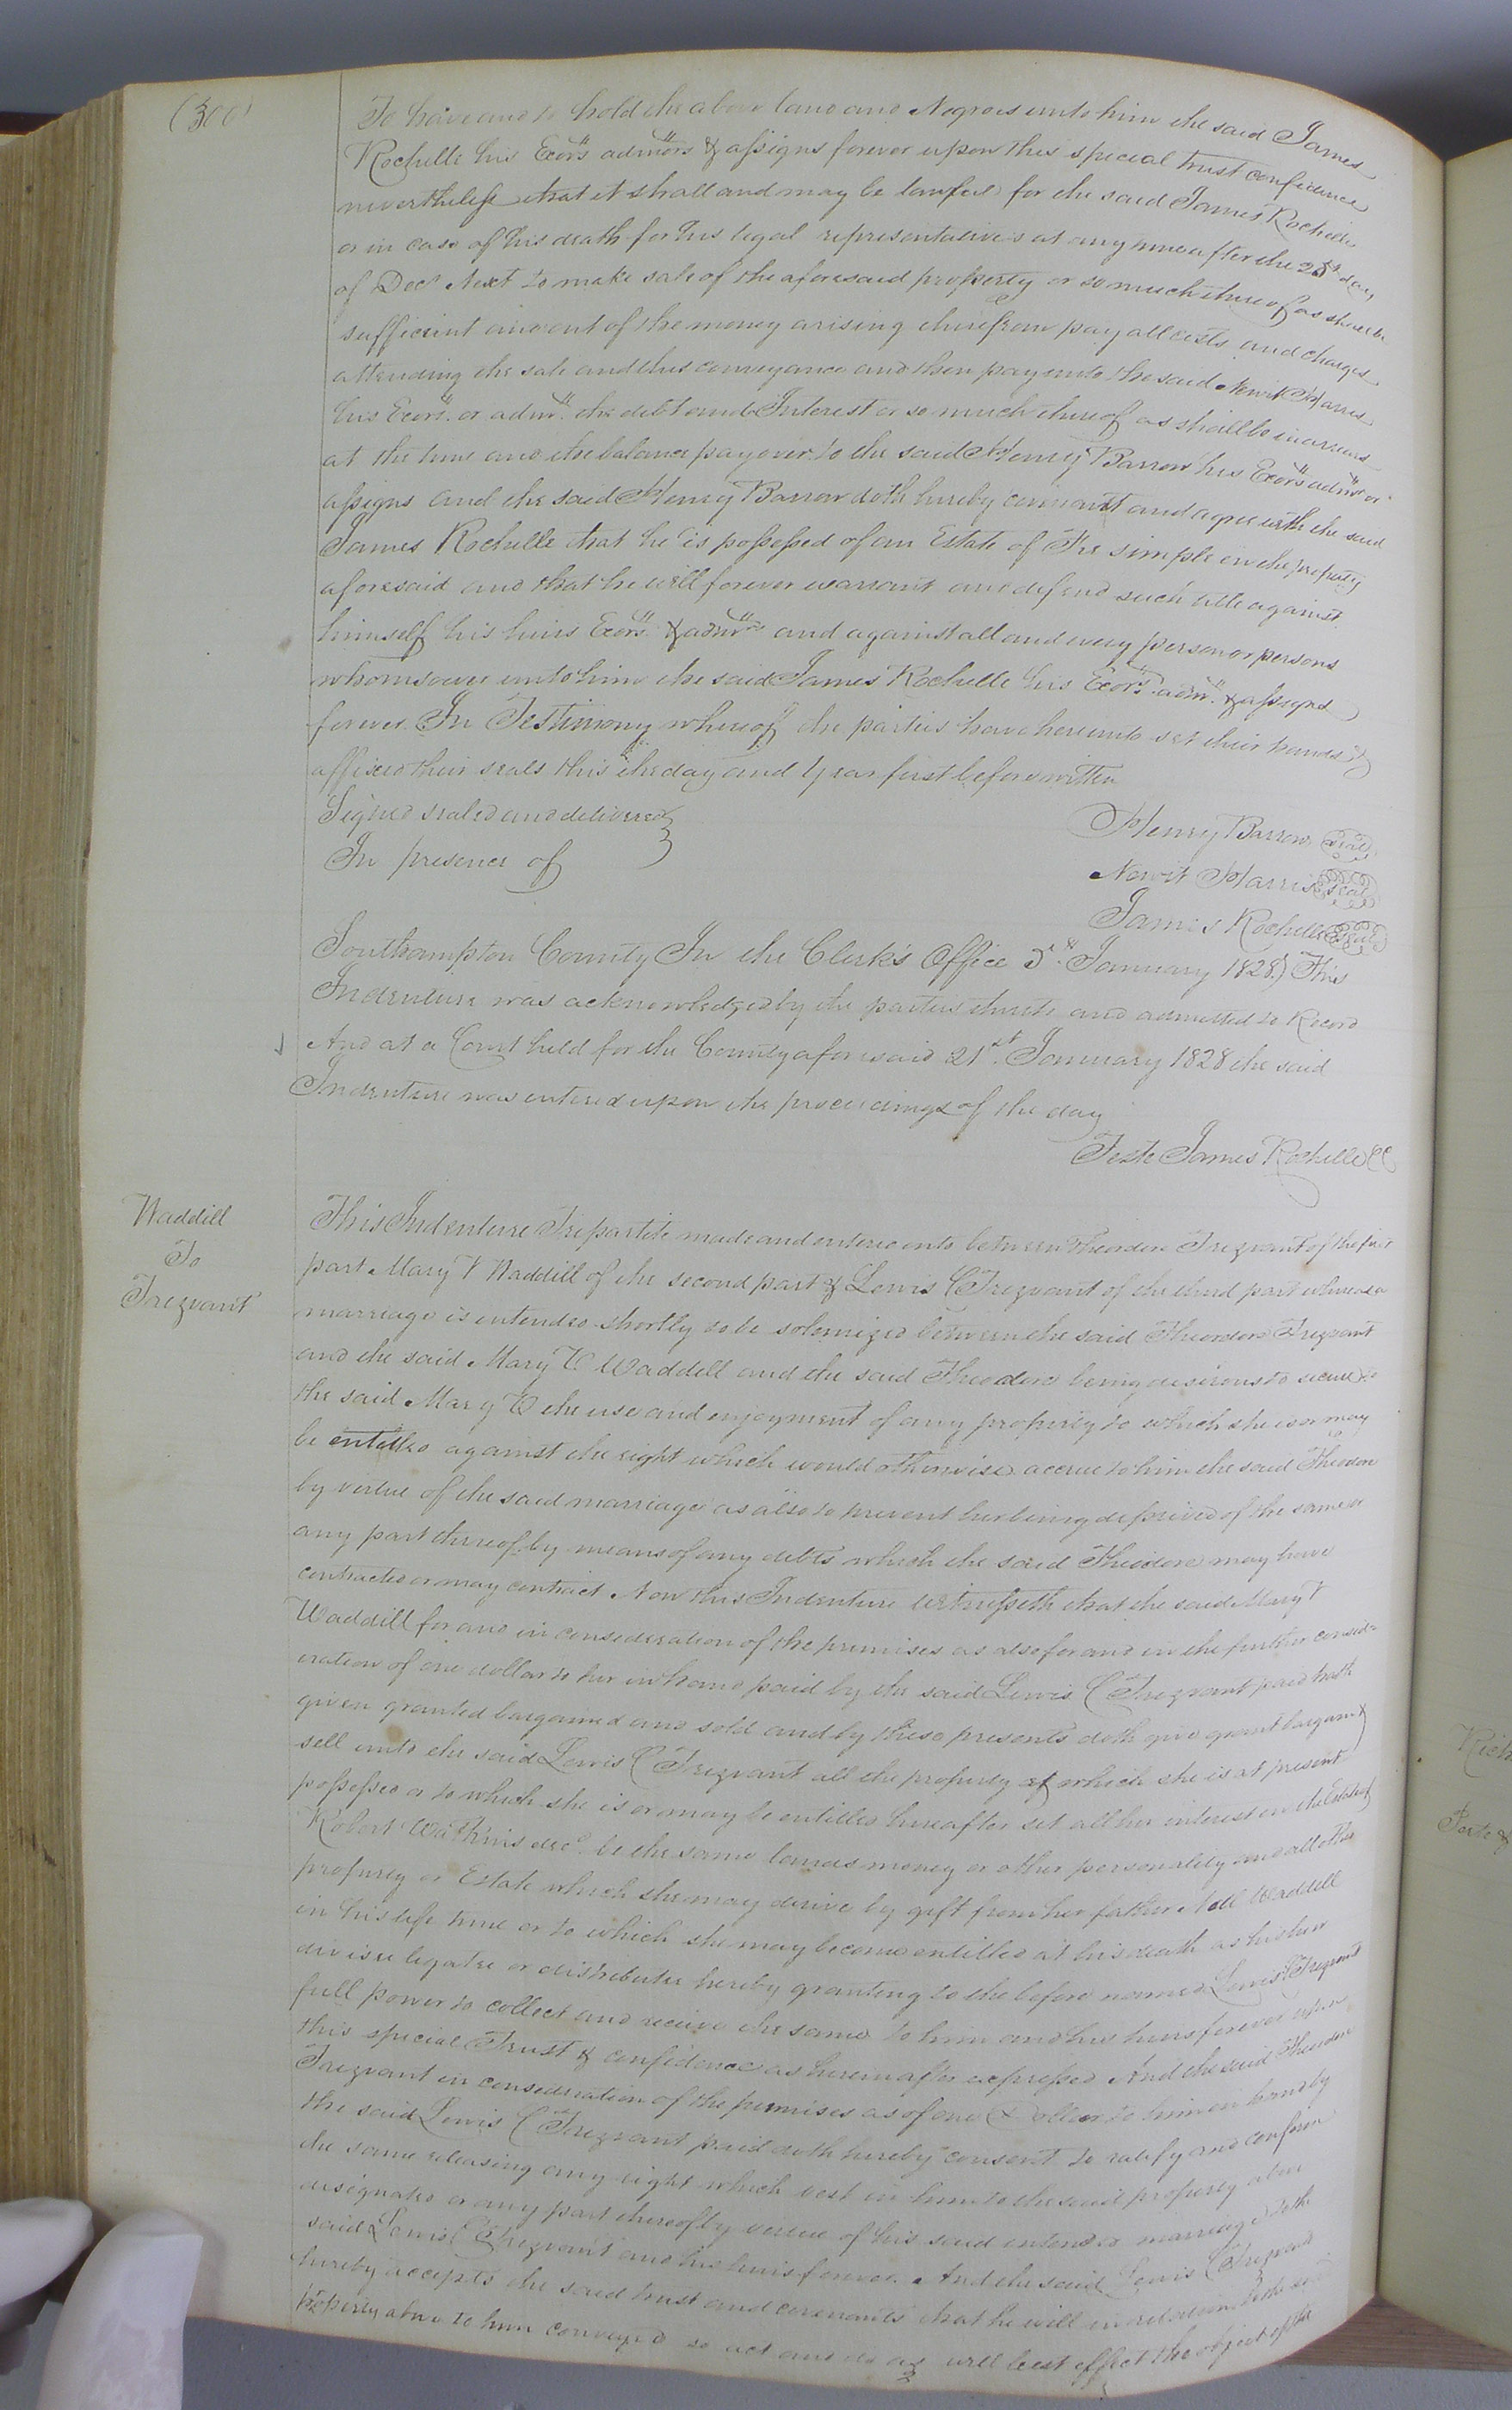 (300)
To have and to hold the above land and Negroes unto him the said James
Rochelle his Exors admors & assigns forever upon this special trust confidence
nevertheless that it shall and may be lawful for the said James Rochelle
or in case of his death for his legal representatives at any time after the 25th day
of Decr Next to make sale of the aforesaid property or so much thereof as shall be
sufficient and out of the money arising therefrom pay all costs and charges
attending the sale and this conveyance and then pay unto the said Newit Harris
his Exors. or admr. the debt and Interest or so much thereof as shall be in arrears
at the time and the balance pay over to the said Henry Barrow his Exors admrs or
assigns and the said Henry Barrow doth hereby covenant and agree with the said
James Rochelle that he is possessed of an Estate of Fee simple in the property
aforesaid and that he will forever warrant and defend such title against
himself his heirs Exors. & admrs and against all and every person or persons
whomsoever unto him the said James Rochelle his Exors. admr. & assigns
forever In Testimony whereof the parties have hereunto set their hands &
affixed their seals this the day and Year first before written
Signed sealed and delivered
In presence of
Henry Barrow Seal
Newit Harris Seal
James Rochelle Seal
Southampton County In the Clerk's Office January 1828) This
Indenture was acknowledged by the parties thereto and admitted to Record
And at a Court held for the County aforesaid 21st. January 1828 the said
Indenture was entered upon the proceedings of the day
Teste James Rochelle CC
Waddill
To
Trezvant
This Indenture Tripartite made and entered into between Theodore Trezvant of the first
part Mary T Waddill of the second part & Lewis C Trezvant of the third part whereas a
marriage is intended shortly to be solemnized between the said Theodore Trezvant
and the said Mary T Waddill and the said Theodore being desirous to secure to
the said Mary T the use and enjoyment of any property to which she is or may
be entitled against the right which would otherwise accrue to him the said Theodore
by virtue of the said marriage as also to prevent her being deprived of the same or
any part thereof by means of any debts which the said Theodore may have
contracted or may contract Now this Indenture Witnesseth that the said Mary T
Waddill for and in consideration of the premises as also for and in the further consid-
eration of one dollar to her in hand paid by the said Lewis C Trezvant paid hath
given granted bargained and sold and by these presents doth give grant bargain &
sell unto the said Lewis C Trezvant all the property of which she is at present
possessed or to which she is or may be entitled hereafter all her interest in the Estate of
Robert Watkins decd. be the same lands money or other personality and all other
property or Estate which she may derive by gift from her father Noel Waddill
in his life time or to which she may become entitled at his death as his heir
devisee legatee or distributee hereby granting to the before named Lewis C Trezvant
full power to collect and receive the same to him and his heirs forever upon
this special Trust & confidence as herein after expressed And the said Theodore
Trezvant in consideration of the premises as of one Dollar to him in hand by
the said Lewis C Trezvant paid doth hereby consent to ratify and confirm
the same releasing any right which vest in him to the said property above
designated or any part thereof by virtue of his said intended marriage to the
said Lewis C Trezvant and his heirs forever. And the said Lewis C Trezvant
hereby accepts the said trust and covenants that he will in relation to the said
property above to him conveyed so act and do as will best effect the object of the
Rich